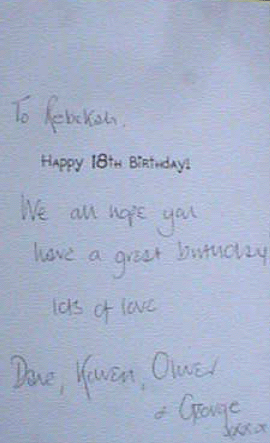 To Rebekah.
HAPPY 18TH BIRTHDAY!
We all hope you
have a great birthday
lots of love
Dave, Karen, Oliver
& George
xxxx